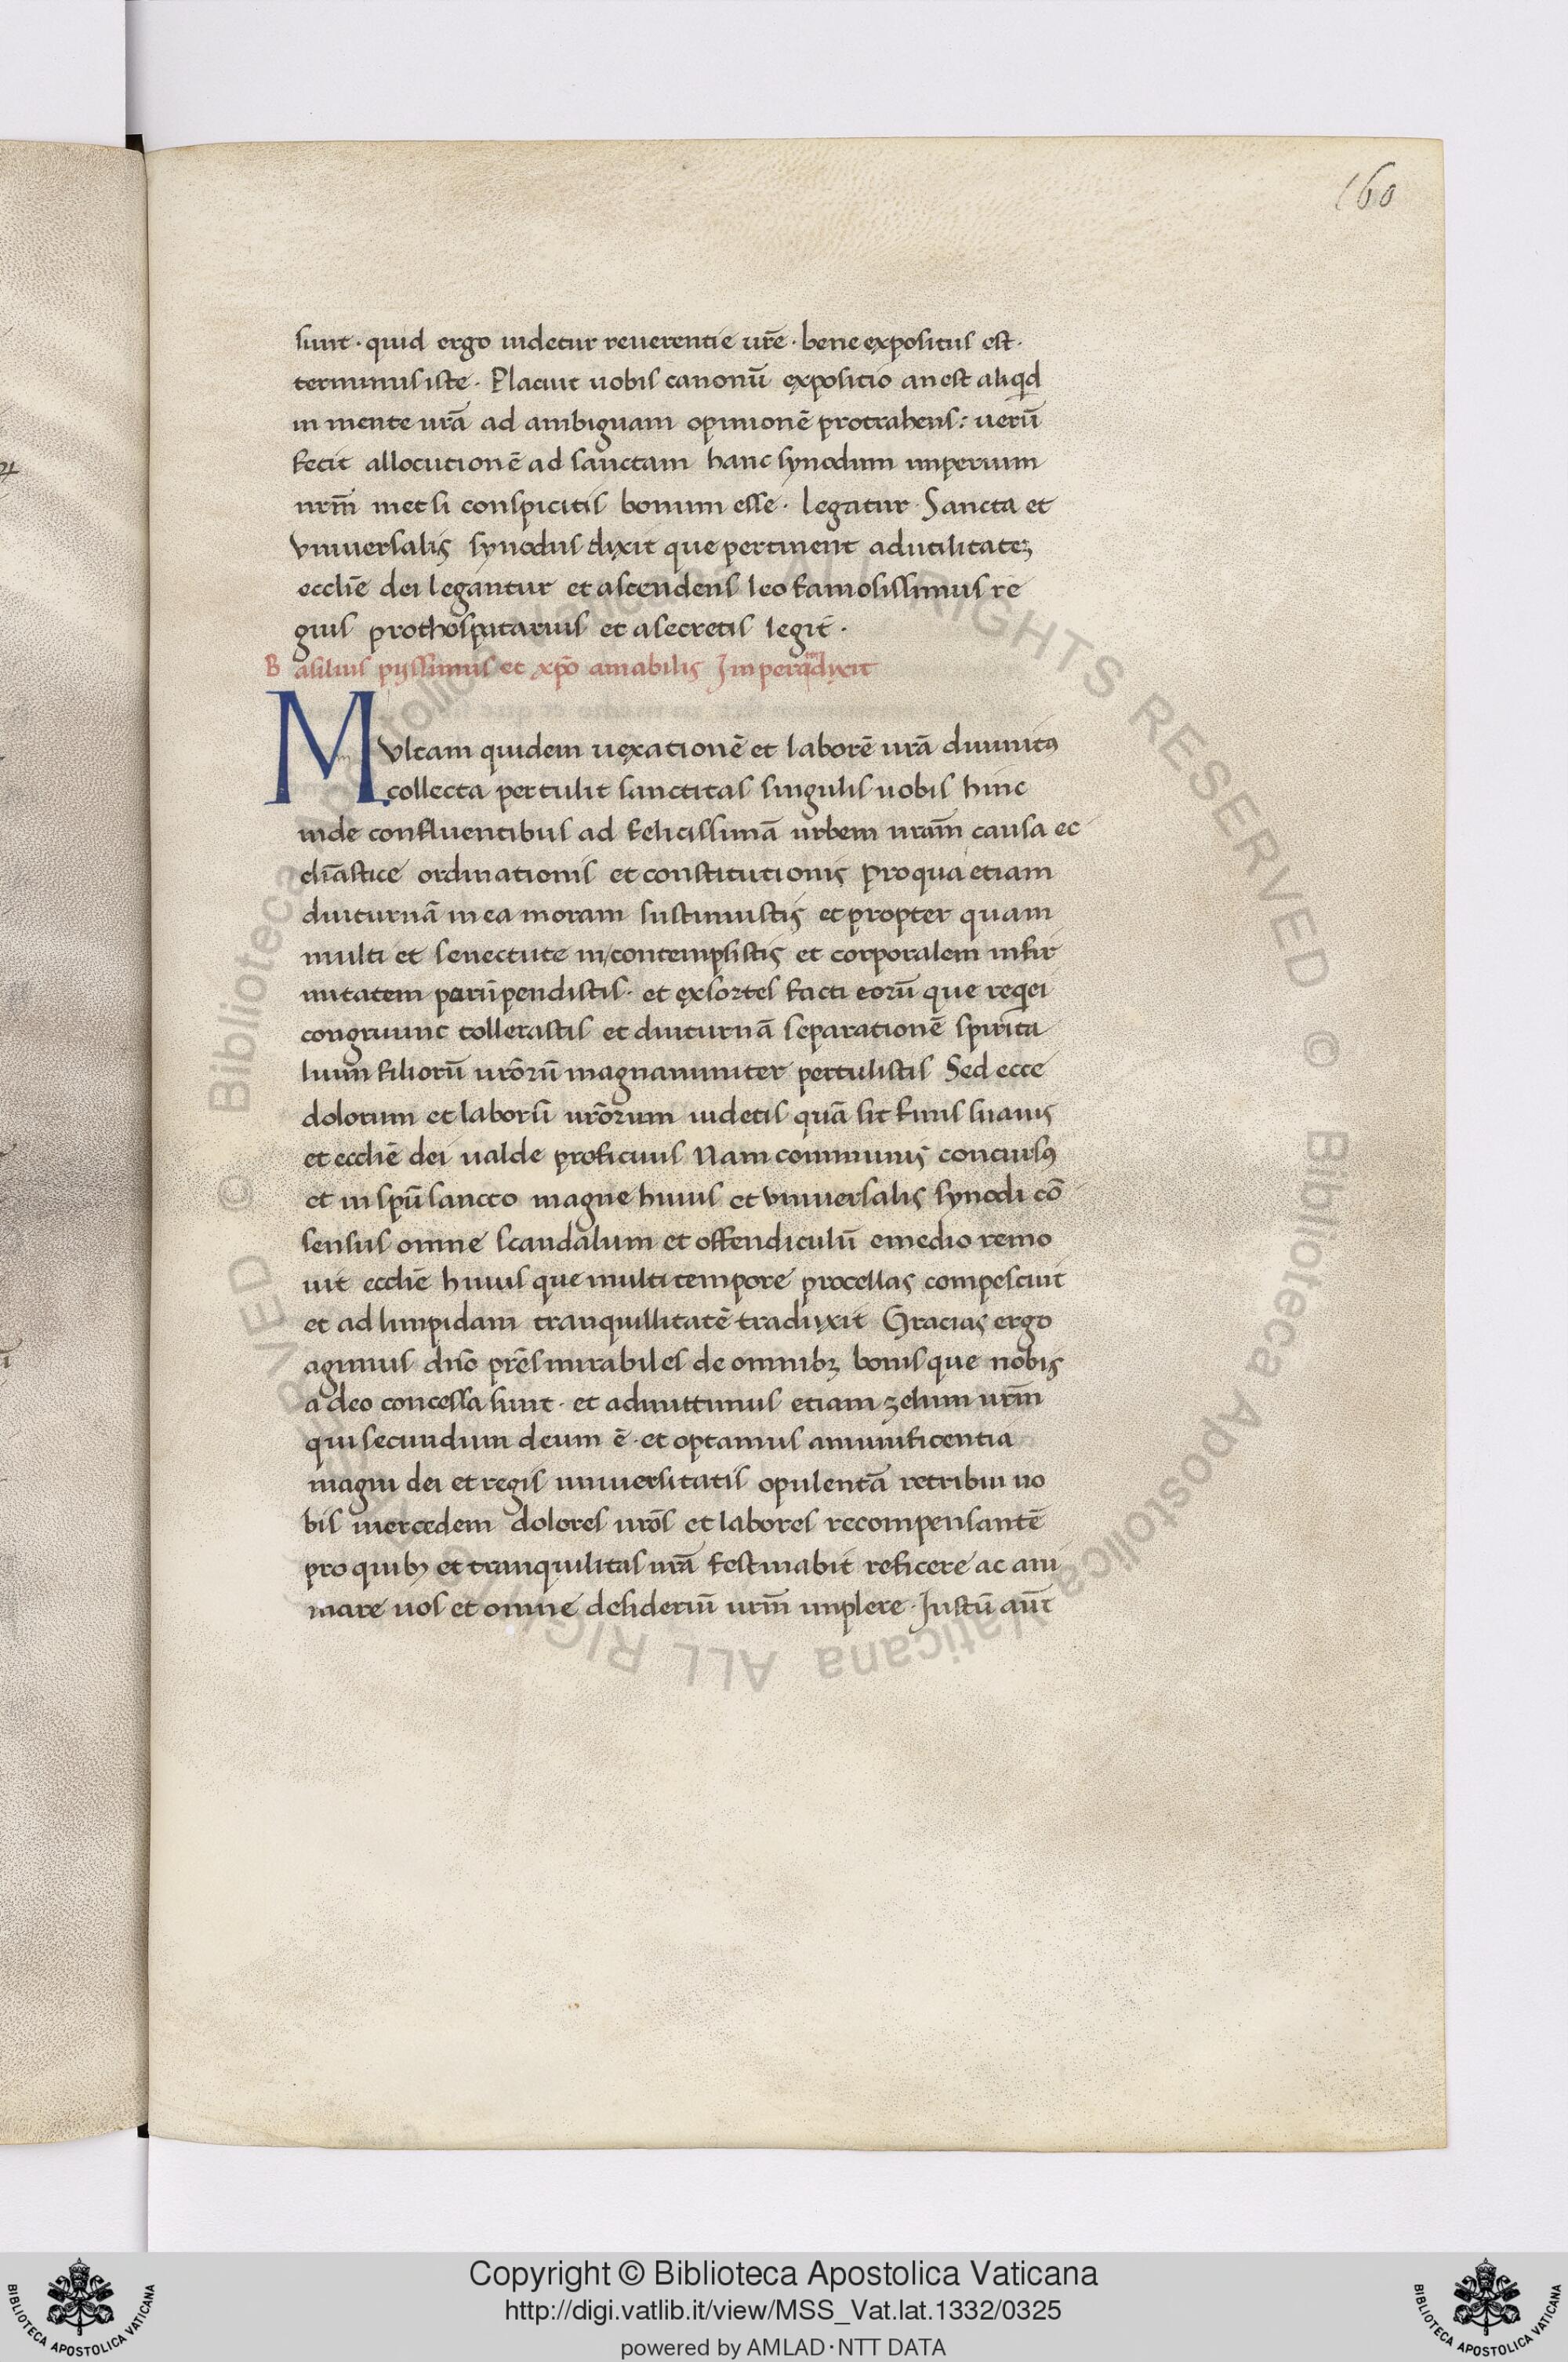 160
sunt · quid ergo uidetur reuerentie urē · bene expositus est ·
terminus iste · Placuit uobis canonū expositio an est aliqd
in mente urā ad ambiguam opinionē protrahens : uerū
fecit allocutionē ad sanctam hanc synodum imperium
nrm̄ met si conspicitis bonum esse · legatur · Sancta et
vniuersalis synodus dixit que pertinent ad utilitatez
eccliē dei legantur et ascendens leo famosissimus re
gius prothospatarius et a secretis legit ·
Basilius pijssimus et xp̄o amabilis Imperator dixit
MVltam quidem uexationē et laborē urā diuinitꝰ
collecta pertulit sanctitas singulis uobis hinc
inde confluentibus ad felicissimā urbem nram̄ causa ec
cliāstice ordinationis et constitutionis pro qua etiam
diuturnā in ea moram sustinuistis et propter quam
multi et senectute in/contempsistis et corporalem infir
mitatem parūpendistis · et exsortes facti eorū que reqei
congruunt tollerastis et diuturnā separationē spirita
lium filiorū urōrū magnanimiter pertulistis Sed ecce
dolorum et laborū urōrum uidetis quā sit finis suauis
et eccliē dei ualde proficuus Nam communis concursꝰ
et in spū sancto magne huius et vniuersalis synodi cō
sensus omne scandalum et offendiculū e medio remo
uit eccliē huius que multi tempore procellas compescuit
et ad limpidam tranquillitatē traduxit Gracias ergo
agimus dn̄o prēs mirabiles de omnibꝫ bonis que nobis
a deo concessa sunt · et admittimus etiam zelum urm̄
qui secundum deum ē · et optamus a munificentia
magni dei et regis uniuersitatis opulentā retribui uo
bis mercedem dolores urōs et labores recompensantē
pro quibꝫ et tranquilitas nrā festinabit reficere ac ani
mare uos et omne desideriū urm̄ implere · Justū aūt
Copyright © Biblioteca Apostolica Vaticana
http://digi.vatlib.it/view/MSS_Vat.lat.1332/0325
powered by AMLAD·NTT DATA
BIBLIOTECA APOSTOLICA VATICANA
BIBLIOTECA APOSTOLICA VATICANA
© Biblioteca Apostolica Vaticana ALL RIGHTS RESERVED © Biblioteca Apostolica Vaticana ALL RIGHTS RESERVED